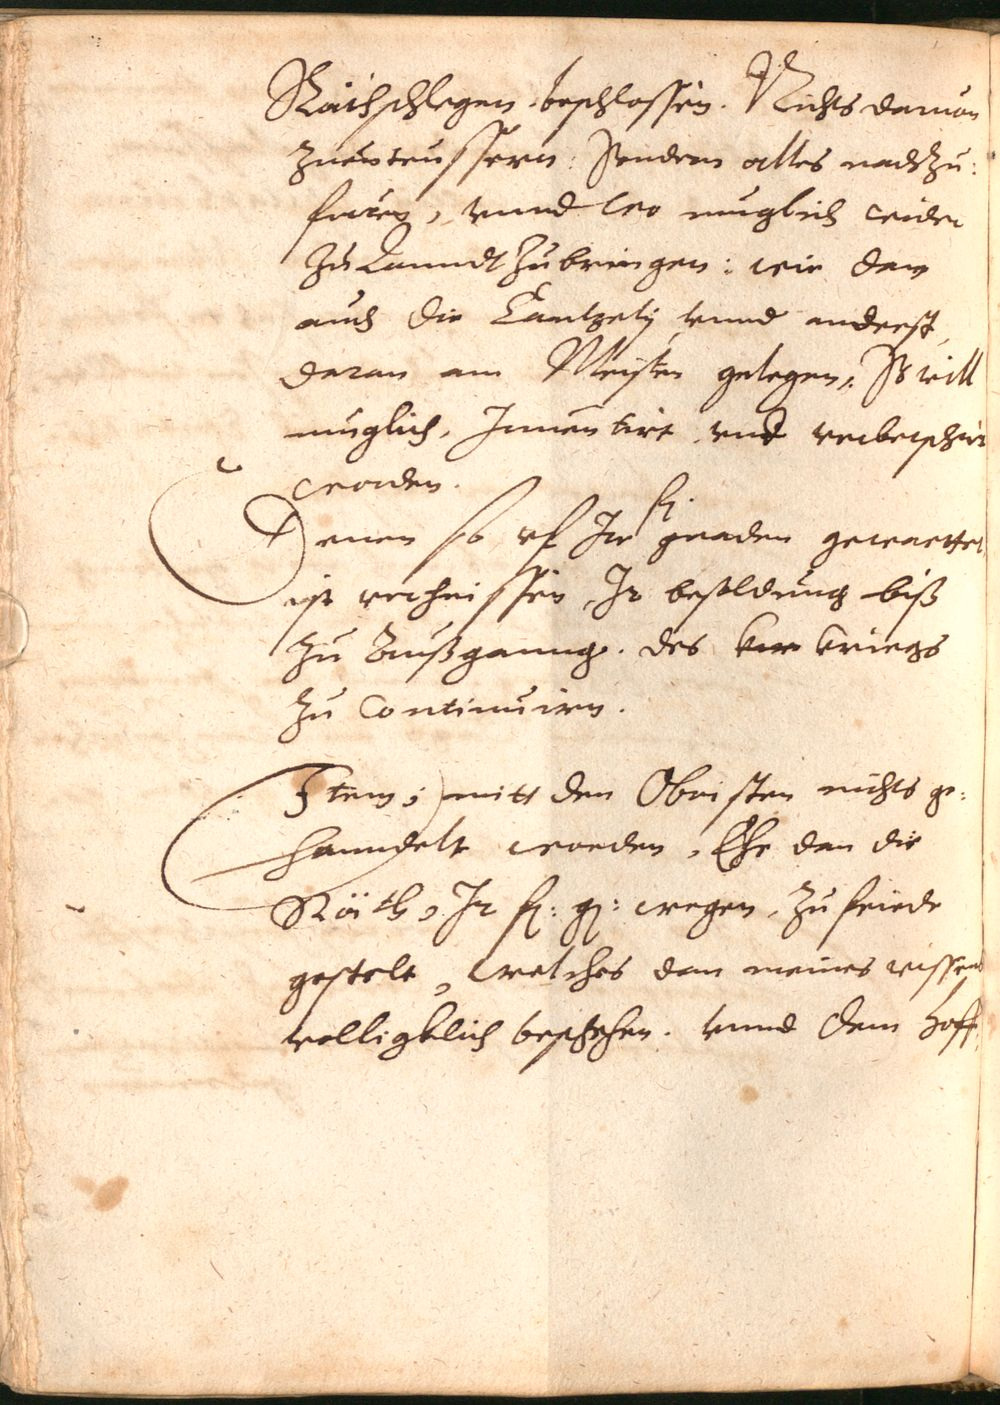 Räthschlegen beschlossen. Nichts daruon
zueuteussern: Sondern alles nachzu:
füren, vnnd wo muglich wider
zu Lanndt zubringen: wie dan
auch die Cantzelÿ vnnd anderst,
daran am Meisten gelegen, So vill
muglich, Inuentirt vnd verbetschirt
worden.
Denen so vf Ire f. gnaden gewarttet
ist verheissen, Ir besoldung biß
zu Außganng. des kriegs
zu Continuirn.
Item; mitt den Obristen nichts ge:
hanndelt worden, Ehe dan die
Räth, Ir f: g: wegen, zu friede
gestelt, welches dan meines wissens
volligklich beschehen. vnnd dem Hoff